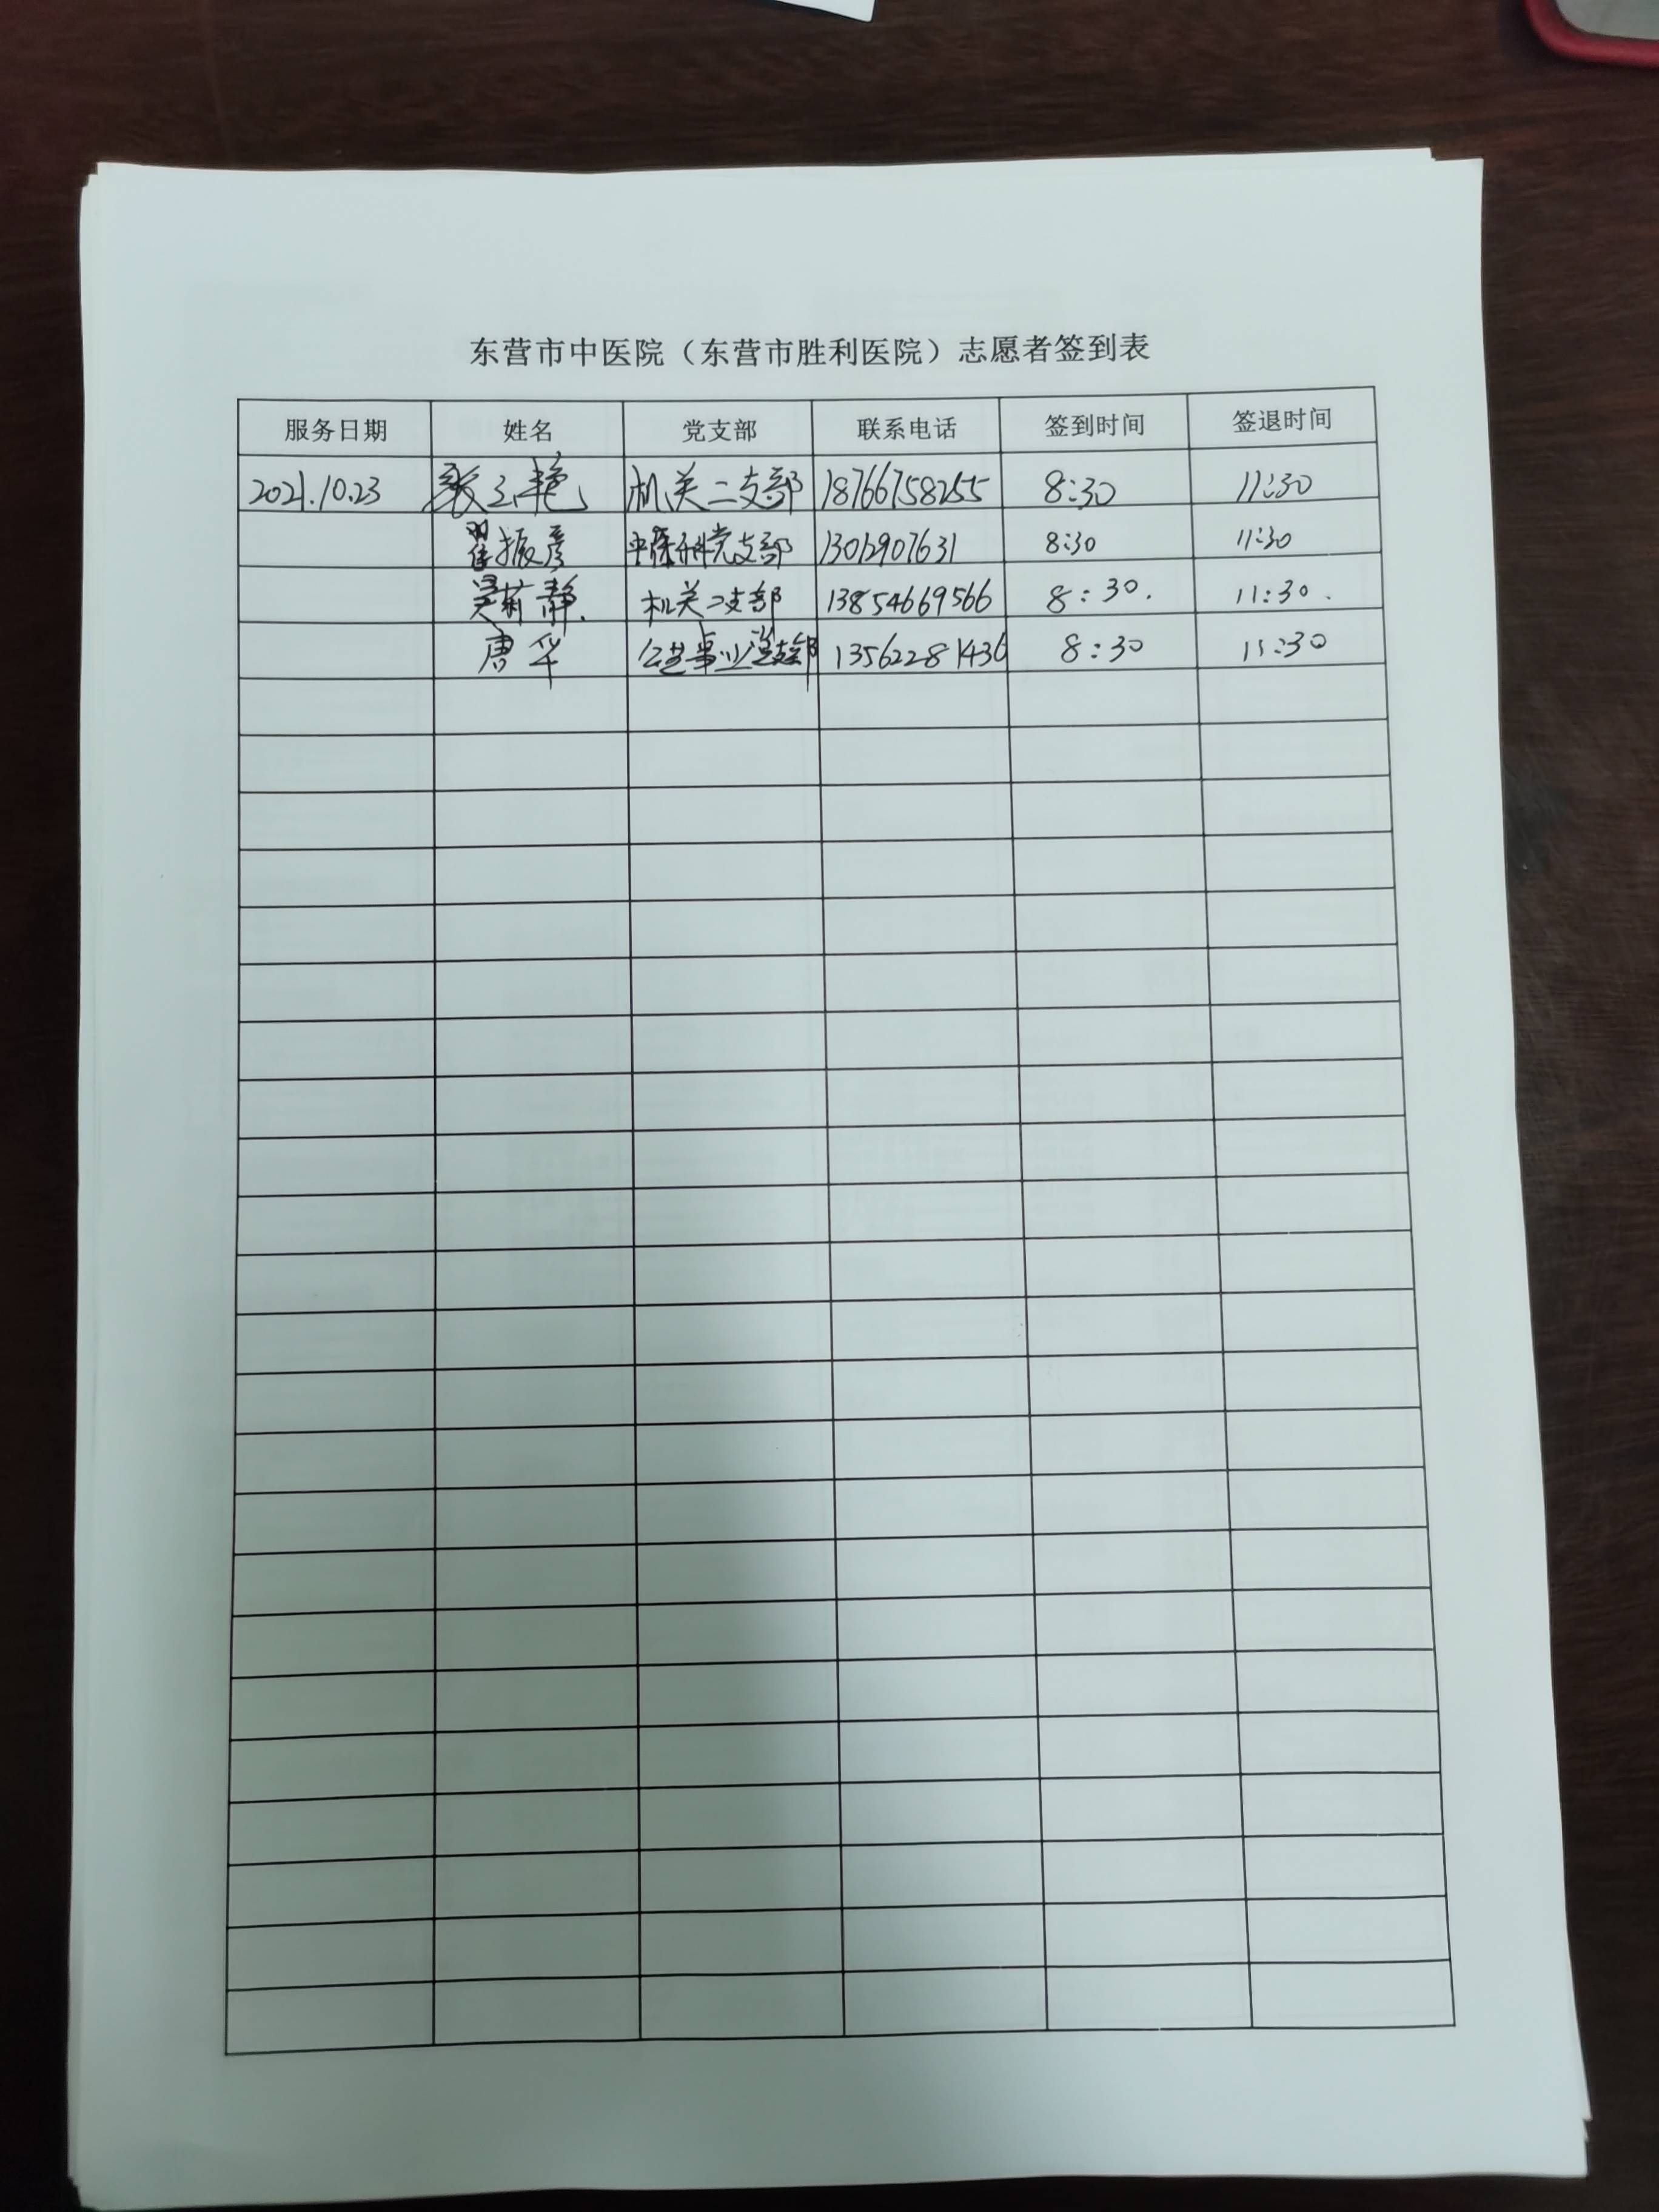 东营市中医院（东营市胜利医院）志愿者签到表
服务日期 姓名 党支部 联系电话 签到时间 签退时间
2021.10.23 张立艳 机关二支部 18766758255 8:30 11:30
翟振彦 党支部 8:30 11:30
吴莉静. 机关二支部 13854669566 8:30. 11:30.
唐华 公共事业党支部 13562281436 8:30 11:30